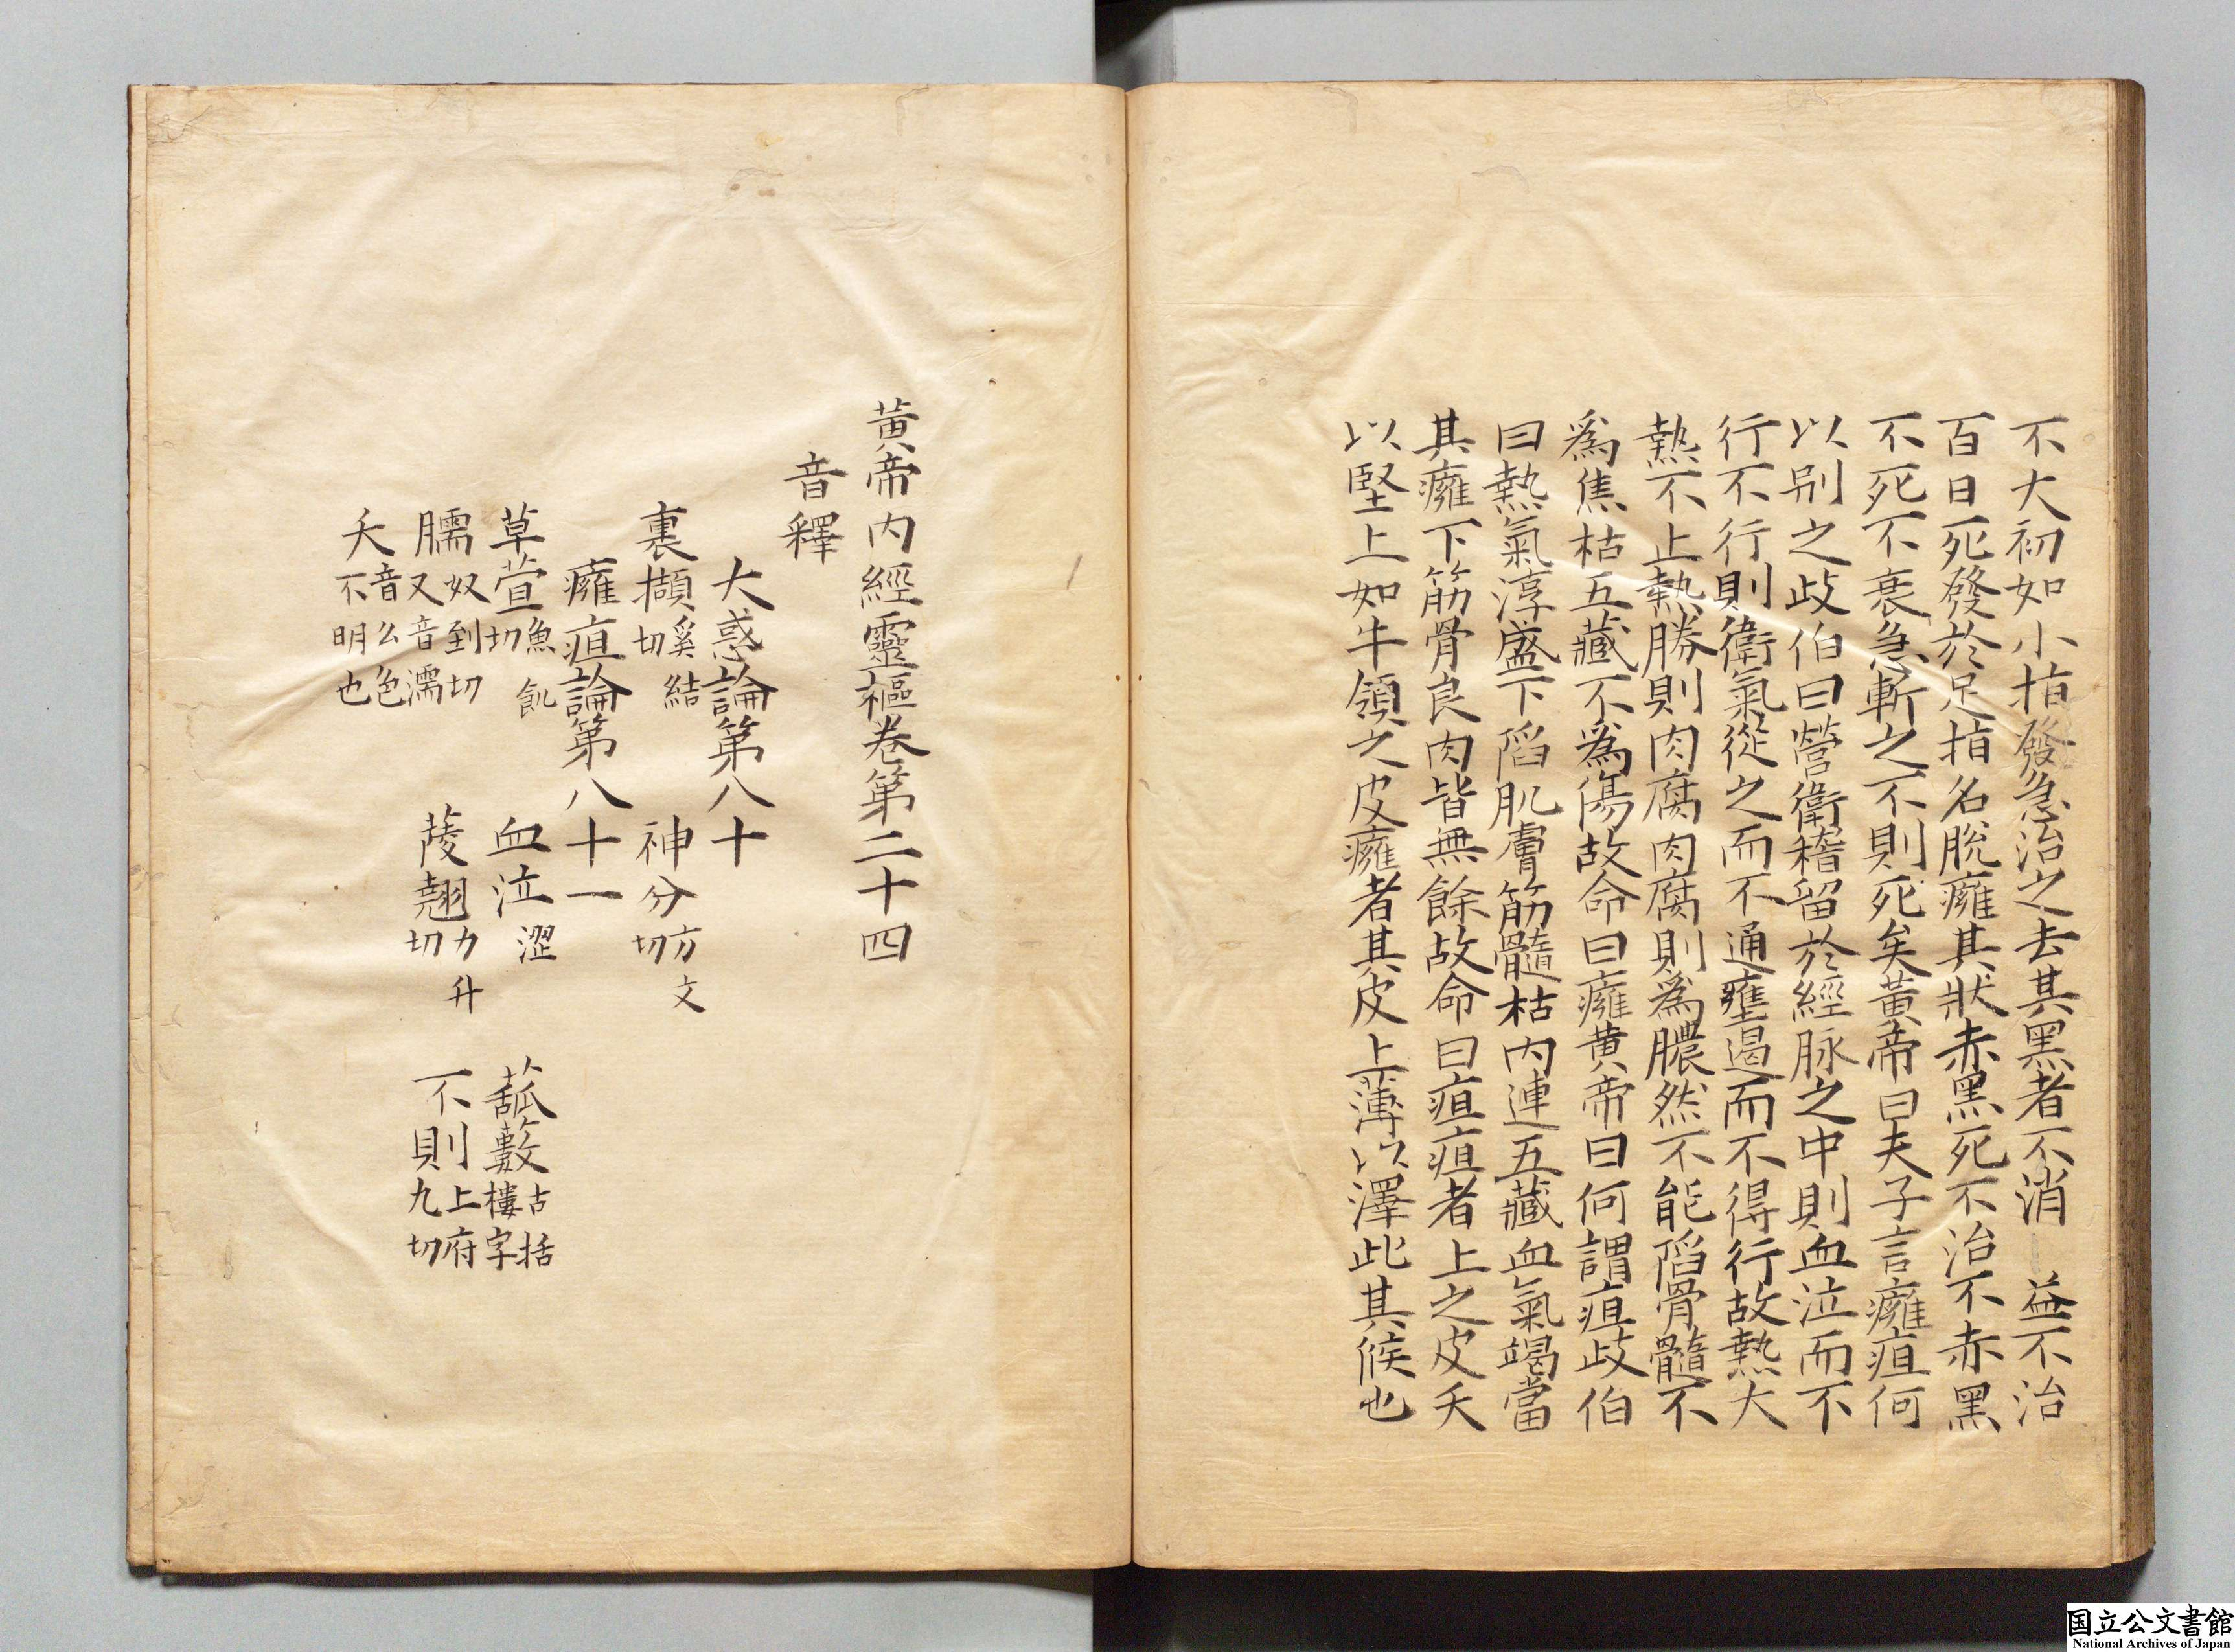 不大初如小指發急治之去其黑者不消益不治
百日死發於足指名脫癰其狀赤黑死不治不赤黑
不死不衰急斬之不則死矣黃帝曰夫子言癰疽何
以別之歧伯曰營衛稽留於經脉之中則血泣而不
行不行則衛氣從之而不通壅遏而不得行故熱大
熱不止熱勝則肉腐肉腐則爲膿然不能陷骨髓不
爲焦枯五藏不爲傷故命曰癰黃帝曰何謂疽歧伯
曰熱氣淳盛下陷肌膚筋髓枯內連五藏血氣竭當
其癰下筋骨良肉皆無餘故命曰疽疽者上之皮夭
以堅上如牛領之皮癰者其皮上薄以澤此其候也
黃帝内經靈樞卷第二十四
音釋
大惑論第八十
裏擷奚結切 神分方文切
癰疽論第八十一
草萓魚飢切 血泣澀 菰䕯古括樓字
臑奴到切又音濡 䔖翹力升切 不則上府九切
夭音么色不明也
国立公文書館
National Archives of Japan